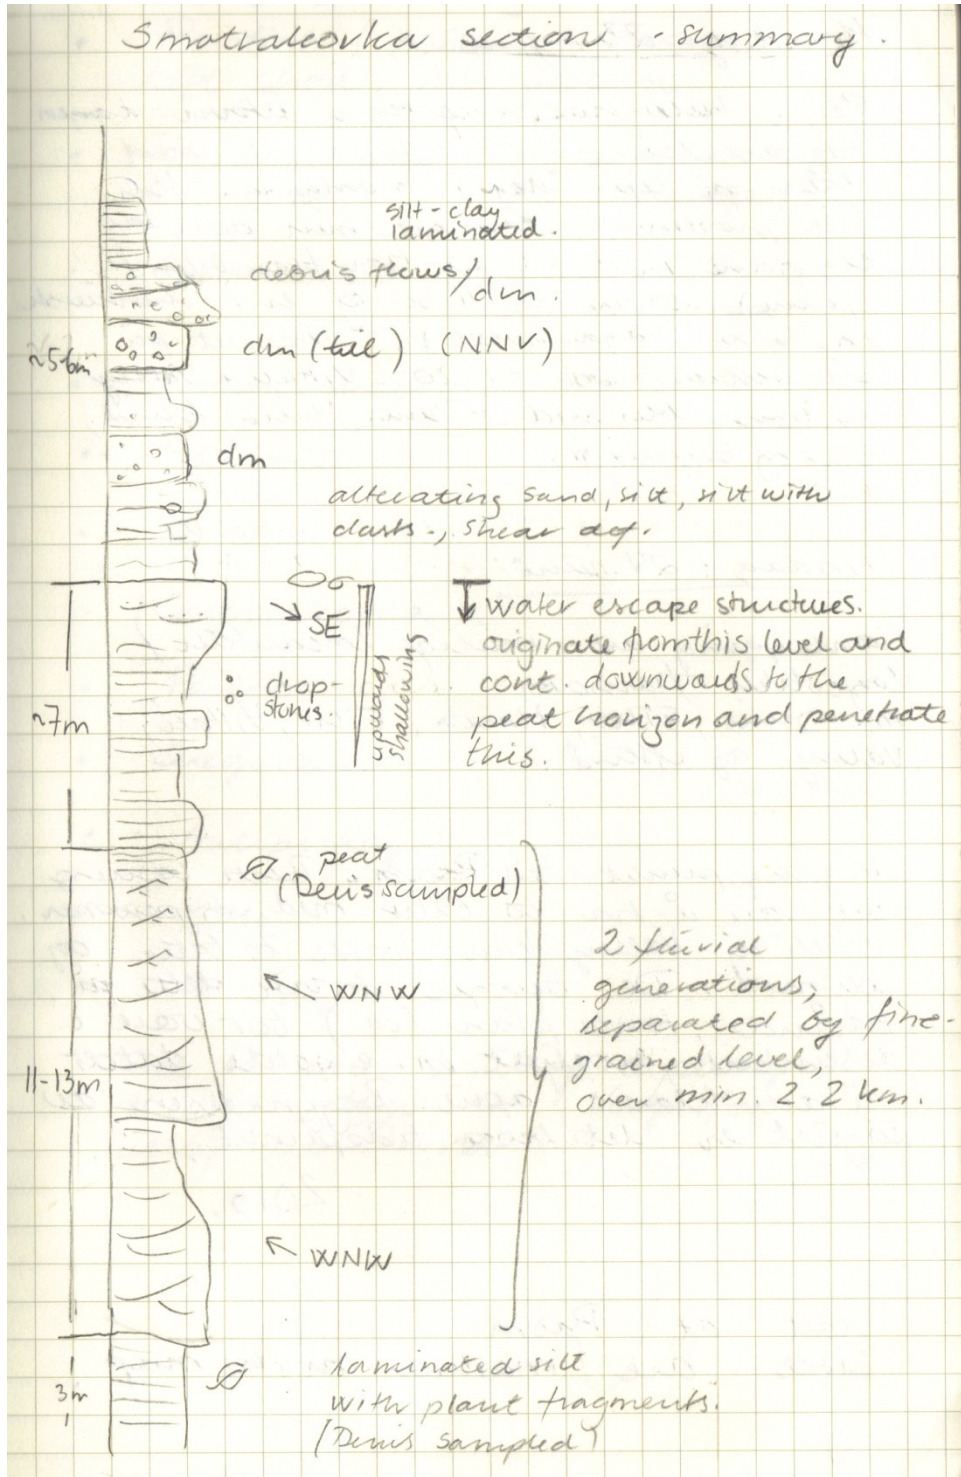 Smotrakovka section - summary.
silt-clay
laminated.
debris flows/
dm.
dm (till) (NNV)
~5-6m
dm
alternating sand, silt, silt with
clasts., shear
SE
drop-
stones.
upwards
shallowing
water escape structures.
originate from this level and
cont. downwards to the
peat horizon and penetrate
this.
~7m
peat
(Denis sampled)
WNW
2 fluvial
generations,
separated by fine-
grained level,
over min. 2.2 km.
11-13m
WNW
laminated silt
with plant fragments.
(Denis sampled)
3m